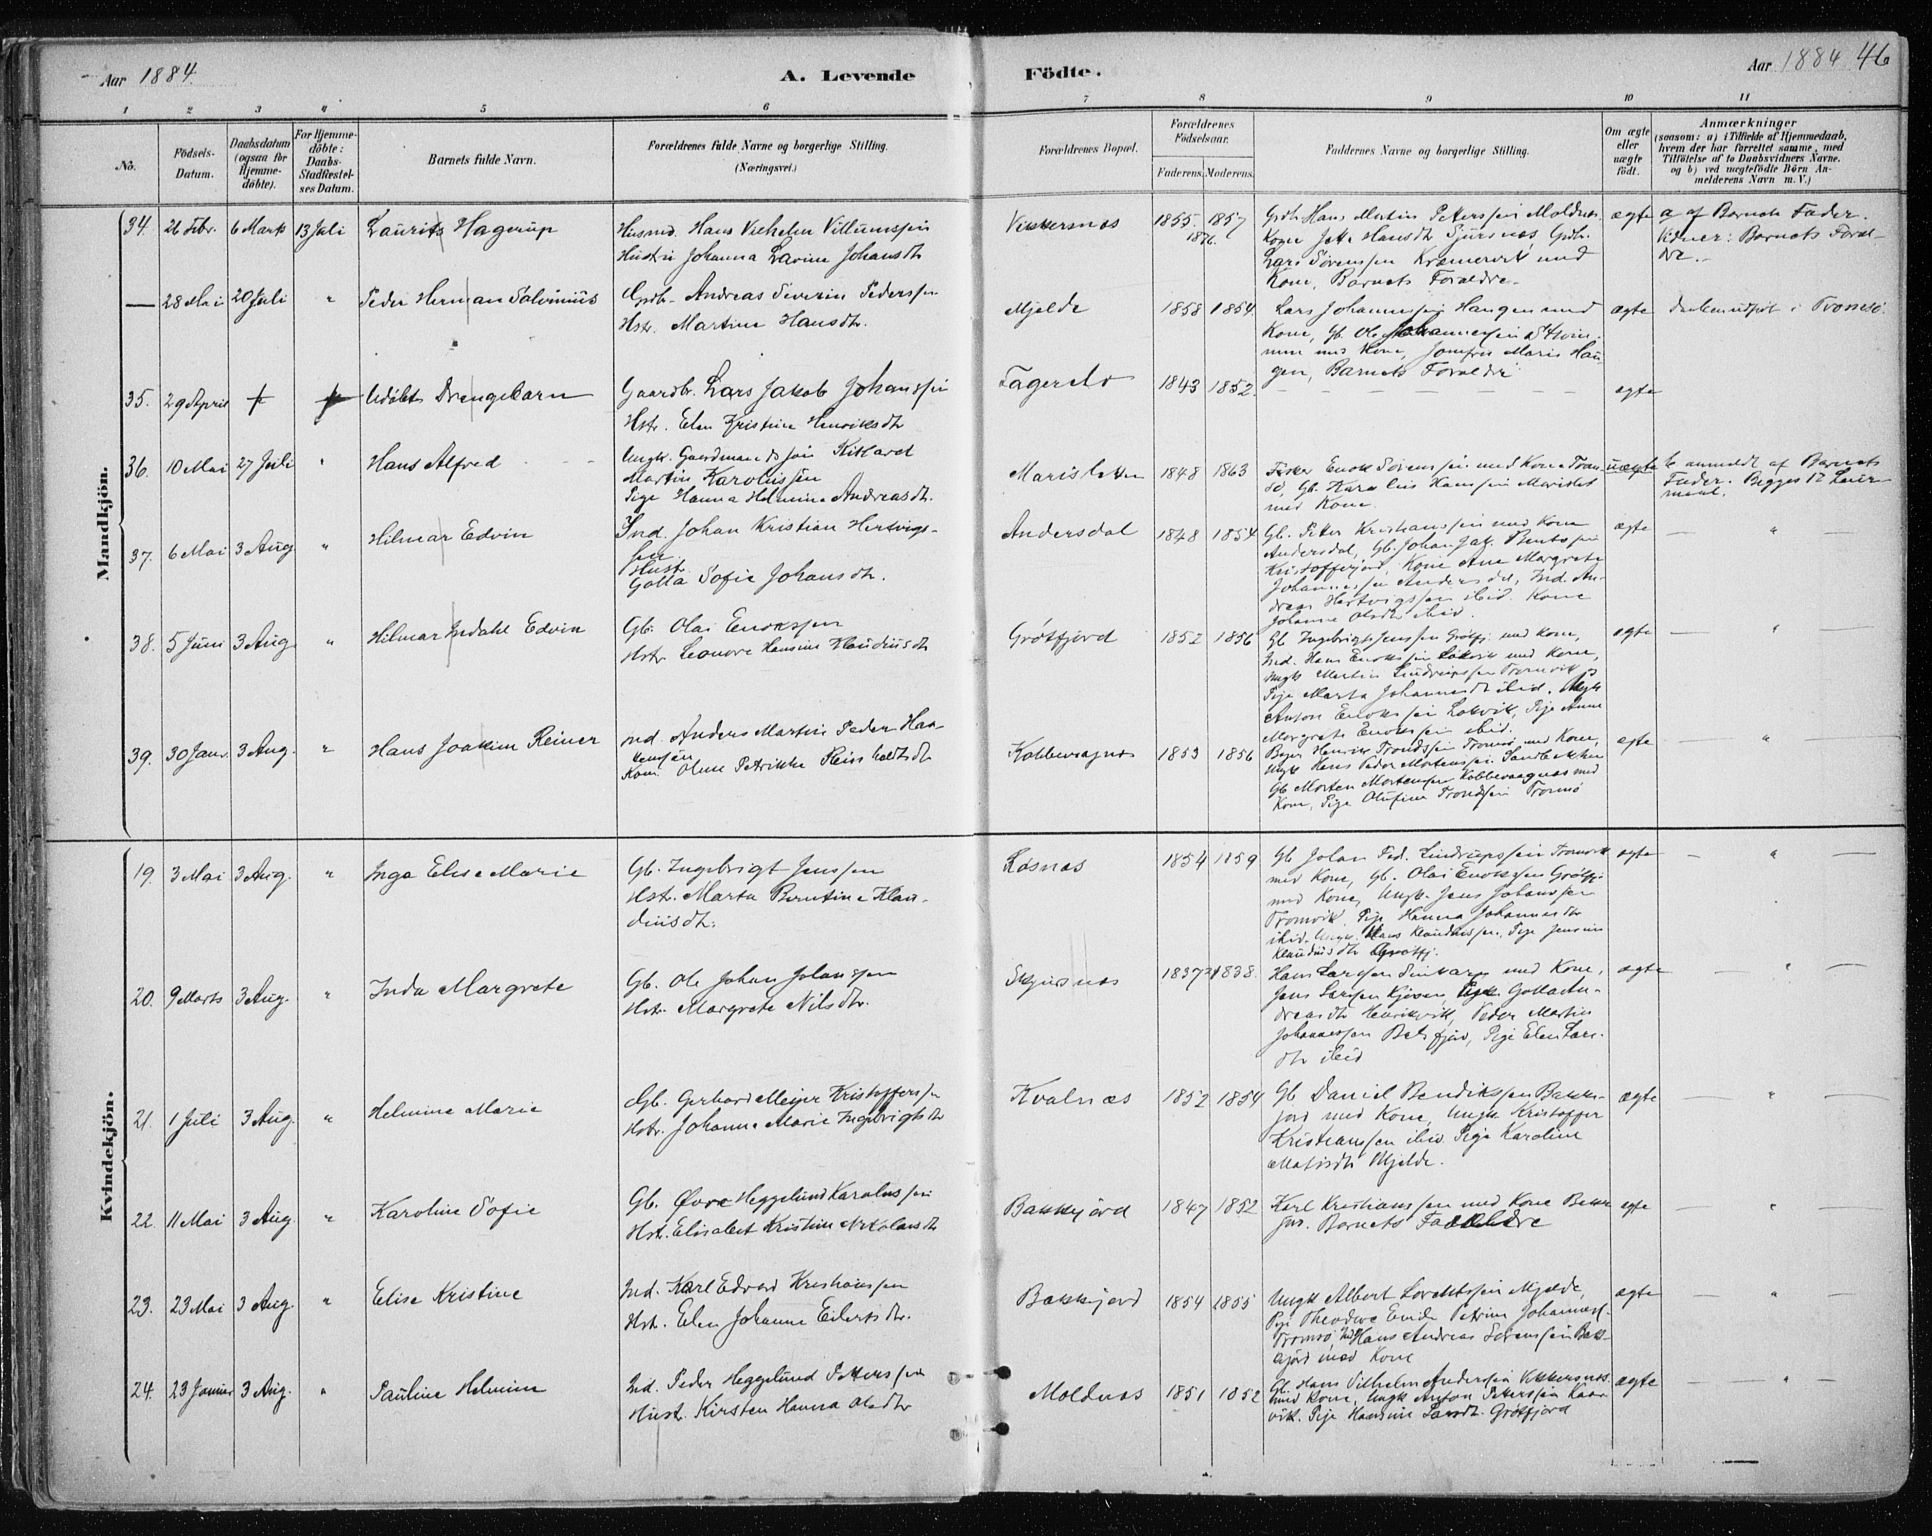 Aar 1884. A. Levende Födte. Aar 1884 46
1 2 3 4 5 6 7 8 9 10 11
No.
Födsels-Datum.
Daabsdatum (ogsaa for Hjemme-döbte).
For Hjemme-döbte: Daabs-Stadfæstel-ses Datum.
Barnets fulde Navn.
Forældrenes fulde Navne og borgerlige Stilling.
(Næringsvei.)
Forældrenes Bopæl.
Forældrenes Födselsaar.
Faderens. Moderens.
Faddernes Navne og borgerlige Stilling.
Om ægte eller uægte födt.
Anmærkninger
(saasom: a) i Tilfælde af Hjemmedaab,
hvem der har forrettet samme, med
Tilföielse af to Daabsvidners Navne.
og b) ved uægtefödte Börn An-
melderens Navn m. V.)
Mandkjön.
34. 26 Febr. 6 Marts 13 Juli Laurits Hagerup
Husmd. Hans Vilhelm Villumssen
Hustru Johanna Lavine Johansdtr
Vikkersnæs 1855 1857
1876.
Grdbr Hans Martin Peterssen Moldnæs
Kone Hansdtr Sjursnæs, Grdbr.
Lars Sörenssen Kræmervik med
Kone, Barnets Forældre.
ægte
a af Barnets Fader.
Vidner: Barnets Foræl-
dre.
— 28 Mai 20 Juli " Peder Herman Salvinius
Grdb. Andreas Severin Pederssen
Hstr. Martine Hansdtr.
Mjelde 1858 1854
Lars Johannessen Haugen med
Kone, Gb. Ole Johannessen
med Kone, Jomfru Marie Hau-
gen, Barnets Forældre
ægte
i Tromsö.
35. 29 April Udöbt Drengebarn
Gaardbr. Lars Jakob Johanssen
Hstr. Elen Kristine Henriksdtr
Fagerelv 1843 1852. — ægte
36. 10 Mai 27 Juli " Hans Alfred
Ungk. Gaardmandssön
Martin Karolussen
Pige Hanna Helmine Andreasdtr.
1848 1863
Fisker Enok Sörenssen med Kone Trom-
sö, Gb. Karolius Hanssen
med Kone.
uægte
b anmeldt af Barnets
Fader. Begges 1ste Leier-
maal.
37. 6 Mai 3 Aug " Hilmar Edvin
Ind. Johan Kristian Hertvigs-
sen
Hustr.
Golla Sofie Johansdtr.
Andersdal 1848 1854
Gb. Peter Kristianssen med Kone
Andersdal, Gb. Johan Jak. Bentssen
Kristofferjord, Kone Ane Margrete
Johannessen Andersdal, Ind. An-
dreas Hertvigssen ibid. Kone
Johanne Olsdtr ibid.
ægte — " —
38. 5 Juni 3 Aug " Hilmar Indahl Edvin
Gb. Olai Enokssen
Hstr Leonore Hansine Klaudiusdtr
Grötfjord 1852 1856
Gb Ingebrigt Jenssen Grötfj. med Kone,
Ind. Hans Enokssen Lökvik med Kone,
Ungk Martin Lindrupssen Tromvik
Pige Marta Johannesdtr ibid. Ungk
Anton Enokssen Lökvik, Pige Anne
Margrete Enokssen ibid.
ægte — " —
39. 30 Janr. 3 Aug. " Hans Joakim Reiner
Ind. Anders Martin Peder Haa-
kenssen
Kone Oline Petrikke Reinholtsdtr
Kobbevaagnæs 1853 1856
Henrik Trondssen Tromsö med Kone,
Ungk Hans Peder Mortenssen Sandbækken
Gb Morten Mortenssen Kobbevaagnæs med
Kone, Pige Olufine Trondssen Tromsö
ægte — " —
Kvindekjön.
19. 3 Mai 3 Aug. " Inga Elise Marie
Gb. Ingebrigt Jenssen
Hstr. Marta Berntine Klau-
diusdtr.
Løsnæs 1854 1859
Gb Johan Ped. Lindrupssen Tromvik
med Kone, Gb. Olai Enokssen Grötfj.
med Kone, Ungk. Jens Johanssen
Tromvik, Pige Hanna Johannesdtr
ibid. Ungk. Hans Klaudiussen, Pige Jensine
Klaudiusdtr Grötfj.
ægte — " —
20. 9 Marts 3 Aug. " Inda Margrete
Gb. Ole Johan Johanssen
Hstr. Margrete Nilsdtr.
1837 1838.
Hans Larssen med Kone,
Jens Larssen Kjosen, Pige Golla An-
dreasdtr Henrikvik, Peder Martin
Johannessen Balsfjord, Pige Elen Lars-
dtr ibid
ægte " —
21. 1 Juli 3 Aug. " Helmine Marie
Gb. Gerhard Meyer Kristofferssen
Hstr. Johanna Marie Ingebrigtsdtr
Kvalnæs 1852 1854
Gb Daniel Bendikssen Bakke-
jord med Kone, Ungk Kristoffer
Kristianssen ibid. Pige Karoline
Matisdtr Mjelde.
ægte "
22. 11 Mai 3 Aug. " Karoline Sofie
Gb. Övre Heggelund Karolussen
Hstr. Elisabet Kristine Nikolaisdtr
Bakkejord 1847 1852
Karl Kristianssen med Kone Bakke-
jord. Barnets Forældre
ægte — " —
23. 23 Mai 3 Aug. " Elise Kristine
Ind. Karl Edvard Kristianssen
Hstr. Elen Johanna Eilertsdtr.
Bakkejord 1854 1855
Ungk Albert Lorentssen Mjelde,
Pige Theodore Petrine Johannes.
Tromsö, Ind Hans Andreas Sörenssen Bak-
kejord med Kone
ægte — " —
24. 23 Januar 3 Aug. " Pauline Helmine
Ind. Peder Heggelund Peterssen
Hustr. Kirsten Hanna Olsdtr
Moldnæs 1851 1852
Gb. Hans Vilhelm Anderssen Vikkersnæs
med Kone, Ungk Anton Peterssen Kaar-
vik. Pige Hansine Larsdtr. Grötfjord
ægte — " —